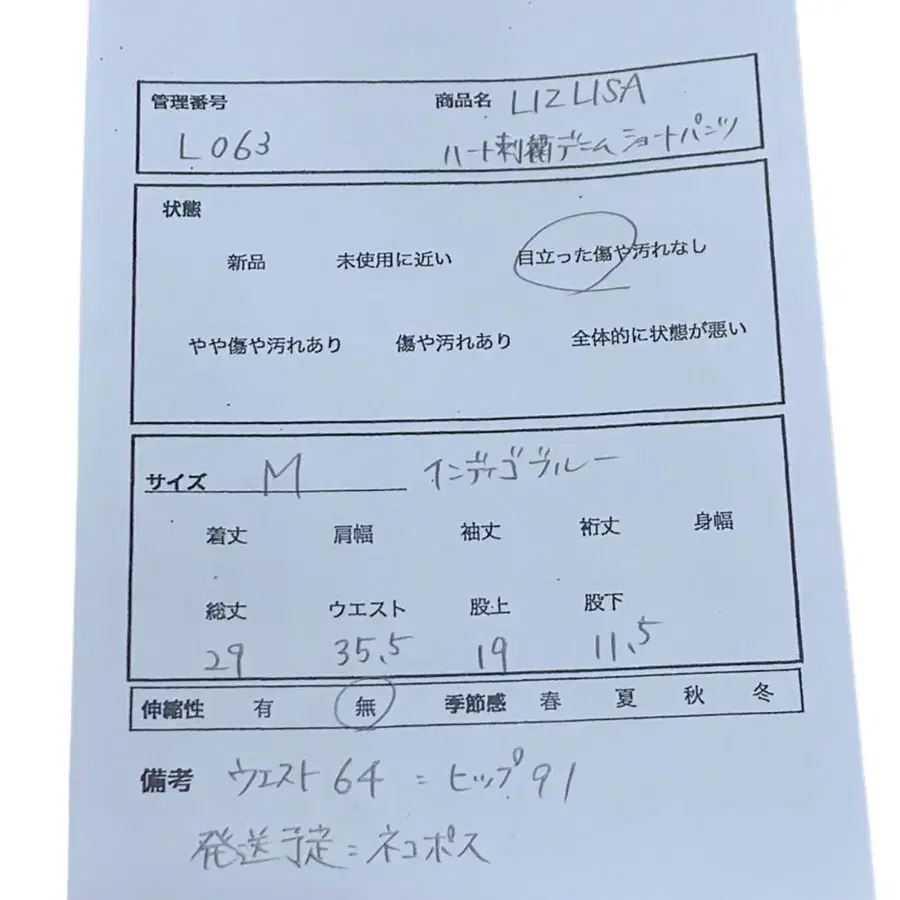 管理番号 商品名 LIZ LISA
L063 ハート刺繍デニムショートパンツ
状態
新品 未使用に近い 目立った傷や汚れなし
やや傷や汚れあり 傷や汚れあり 全体的に状態が悪い
サイズ M インディゴブルー
着丈 肩幅 袖丈 裄丈 身幅
総丈 ウエスト 股上 股下
29 35.5 19 11.5
伸縮性 有 無 季節感 春 夏 秋 冬
備考 ウエスト64 = ヒップ91
発送予定=ネコポス